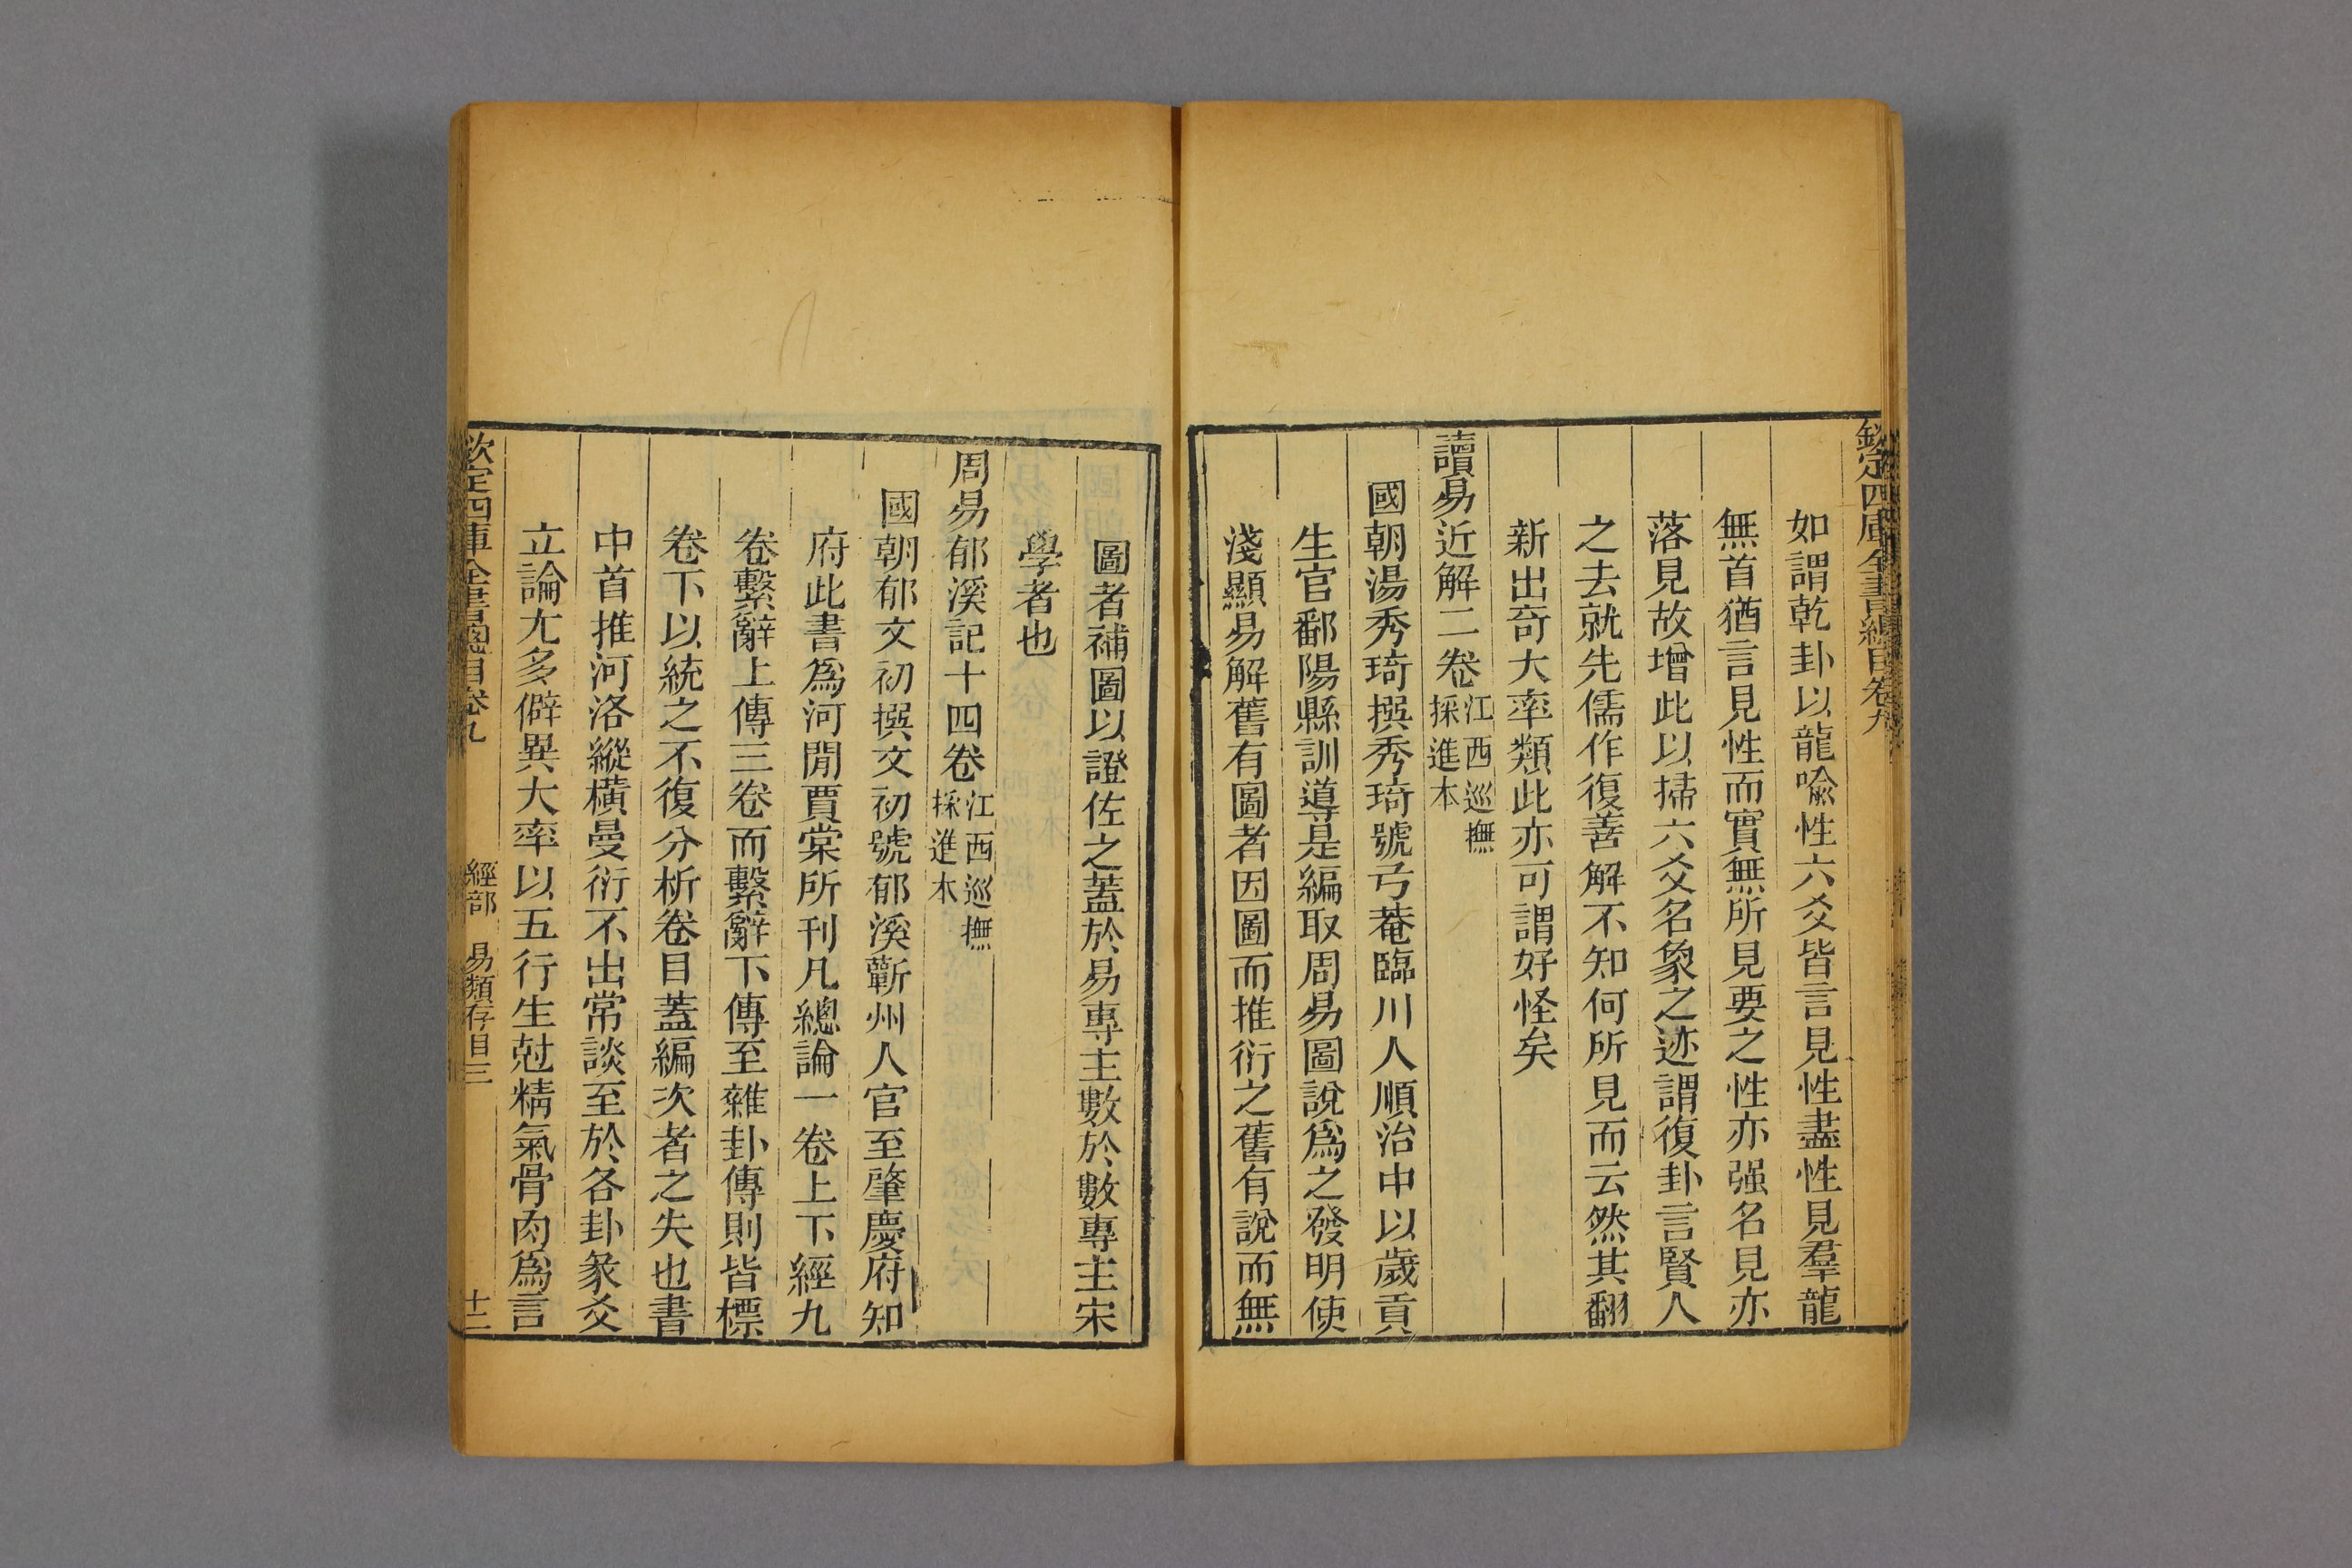 欽定四庫全書總目卷九
如謂乾卦以龍喩性六爻皆言見性盡性見羣龍
無首猶言見性而實無所見要之性亦强名見亦
落見故增此以掃六爻名象之迹謂復卦言賢人
之去就先儒作復善解不知何所見而云然其翻
新出奇大率類此亦可謂好怪矣
讀易近解二卷江西巡撫採進本
國朝湯秀琦撰秀琦號弓菴臨川人順治中以歲貢
生官鄱陽縣訓導是編取周易圖說爲之發明使
淺顯易解舊有圖者因圖而推衍之舊有說而無
圖者補圖以證佐之蓋於易專主數於數專主宋
學者也
周易郁溪記十四卷江西巡撫採進本
國朝郁文初撰文初號郁溪蘄州人官至肇慶府知
府此書爲河閒賈棠所刊凡總論一卷上下經九
卷繫辭上傳三卷而繫辭下傳至雜卦傳則皆標
卷下以統之不復分析卷目蓋編次者之失也書
中首推河洛縱橫曼衍不出常談至於各卦彖爻
立論尤多僻異大率以五行生尅精氣骨肉爲言
欽定四庫全書總目卷九 經部 易類存目三 十二